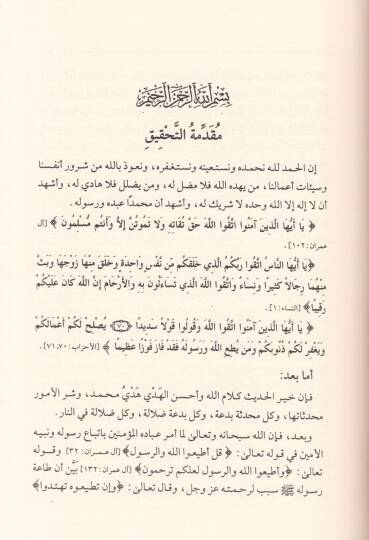 بِسْمِ اللَّهِ الرَّحْمَنِ الرَّحِيمِ
مُقَدِّمَةُ التَّحْقِيقِ
إن الحمد لله نحمده ونستعينه ونستغفره، ونعوذ بالله من شرور أنفسنا
وسيئات أعمالنا، من يهده الله فلا مضل له، ومن يضلل فلا هادي له، وأشهد
أن لا إله إلا الله وحده لا شريك له، وأشهد أن محمدًا عبده ورسوله.
﴿ يَا أَيُّهَا الَّذِينَ آمَنُوا اتَّقُوا اللَّهَ حَقَّ تُقَاتِهِ وَلا تَمُوتُنَّ إِلاَّ وَأَنتُم مُّسْلِمُونَ ﴾ [آل
عمران: ١٠٢].
﴿يَا أَيُّهَا النَّاسُ اتَّقُوا رَبَّكُمُ الَّذِي خَلَقَكُم مِّن نَّفْسٍ وَاحِدَةٍ وَخَلَقَ مِنْهَا زَوْجَهَا وَبَثَّ
مِنْهُمَا رِجَالاً كَثِيرًا وَنِسَاءً وَاتَّقُوا اللَّهَ الَّذِي تَسَاءَلُونَ بِهِ وَالأَرْحَامَ إِنَّ اللَّهَ كَانَ عَلَيْكُمْ
رَقِيبًا﴾ [النساء: ١].
﴿ يَا أَيُّهَا الَّذِينَ آمَنُوا اتَّقُوا اللَّهَ وَقُولُوا قَوْلاً سَدِيدًا (٧٠) يُصْلِحْ لَكُمْ أَعْمَالَكُمْ
وَيَغْفِرْ لَكُمْ ذُنُوبَكُمْ وَمَن يُطِعِ اللَّهَ وَرَسُولَهُ فَقَدْ فَازَ فَوْزًا عَظِيمًا ﴾ [الأحزاب: ٧١،٧٠].
أما بعد:
فإن خير الحديث كلام الله وأحسن الهَدْيِ هَدْيُ محمد، وشر الأمور
محدثاتها، وكل محدثة بدعة، وكل بدعة ضلالة، وكل ضلالة في النار.
وبعد، فإن الله سبحانه وتعالى لما أمر عباده المؤمنين باتباع رسوله ونبيه
الأمين في قوله تعالى: ﴿ قل أطيعوا الله والرسول﴾ [آل عمران: ٣٢] وقوله
تعالى: ﴿وأطيعوا الله والرسول لعلكم ترحمون﴾ [آل عمران: ١٣٢] بَيَّن أن طاعة
رسوله ﷺ سبب لرحمته عز وجل، وقال تعالى: ﴿وإن تطيعوه تهتدوا﴾